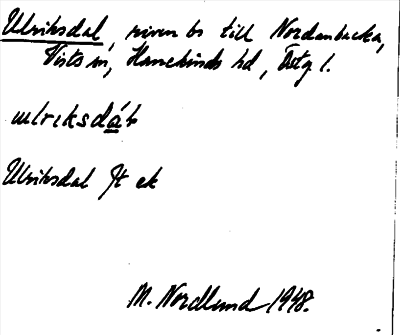 Ulriksdal, riven bs till Nordanbacka,
Vists sn, Hanekinds hd, Östg l.
ulriksdáɫ
Ulriksdal Jt ek
M. Nordlund 1948.